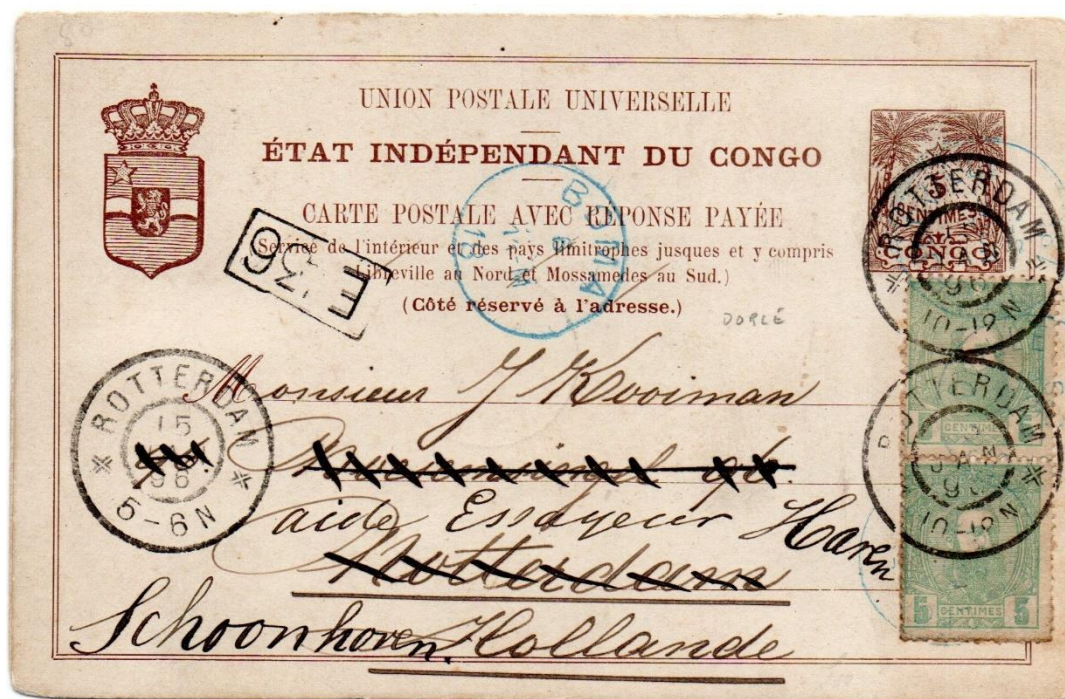 UNION POSTALE UNIVERSELLE
ÉTAT INDÉPENDANT DU CONGO
CARTE POSTALE AVEC REPONSE PAYÉE
(Service de l'intérieur et des pays limitrophes jusques et y compris
Libreville au Nord et Mossamedes au Sud.)
(Côté réservé à l'adresse.)
CENTIMES
CONGO
BOMA
E 136
DORLÉ
ROTTERDAM
10-12 N
ROTTERDAM
JAN
10-12 N
ROTTERDAM
15
96
5-6 N
CENTIMES
5 CENTIMES 5
Monsieur J Kooiman
aide Essayeur Haven
Rotterdam
Schoonhoven. Hollande